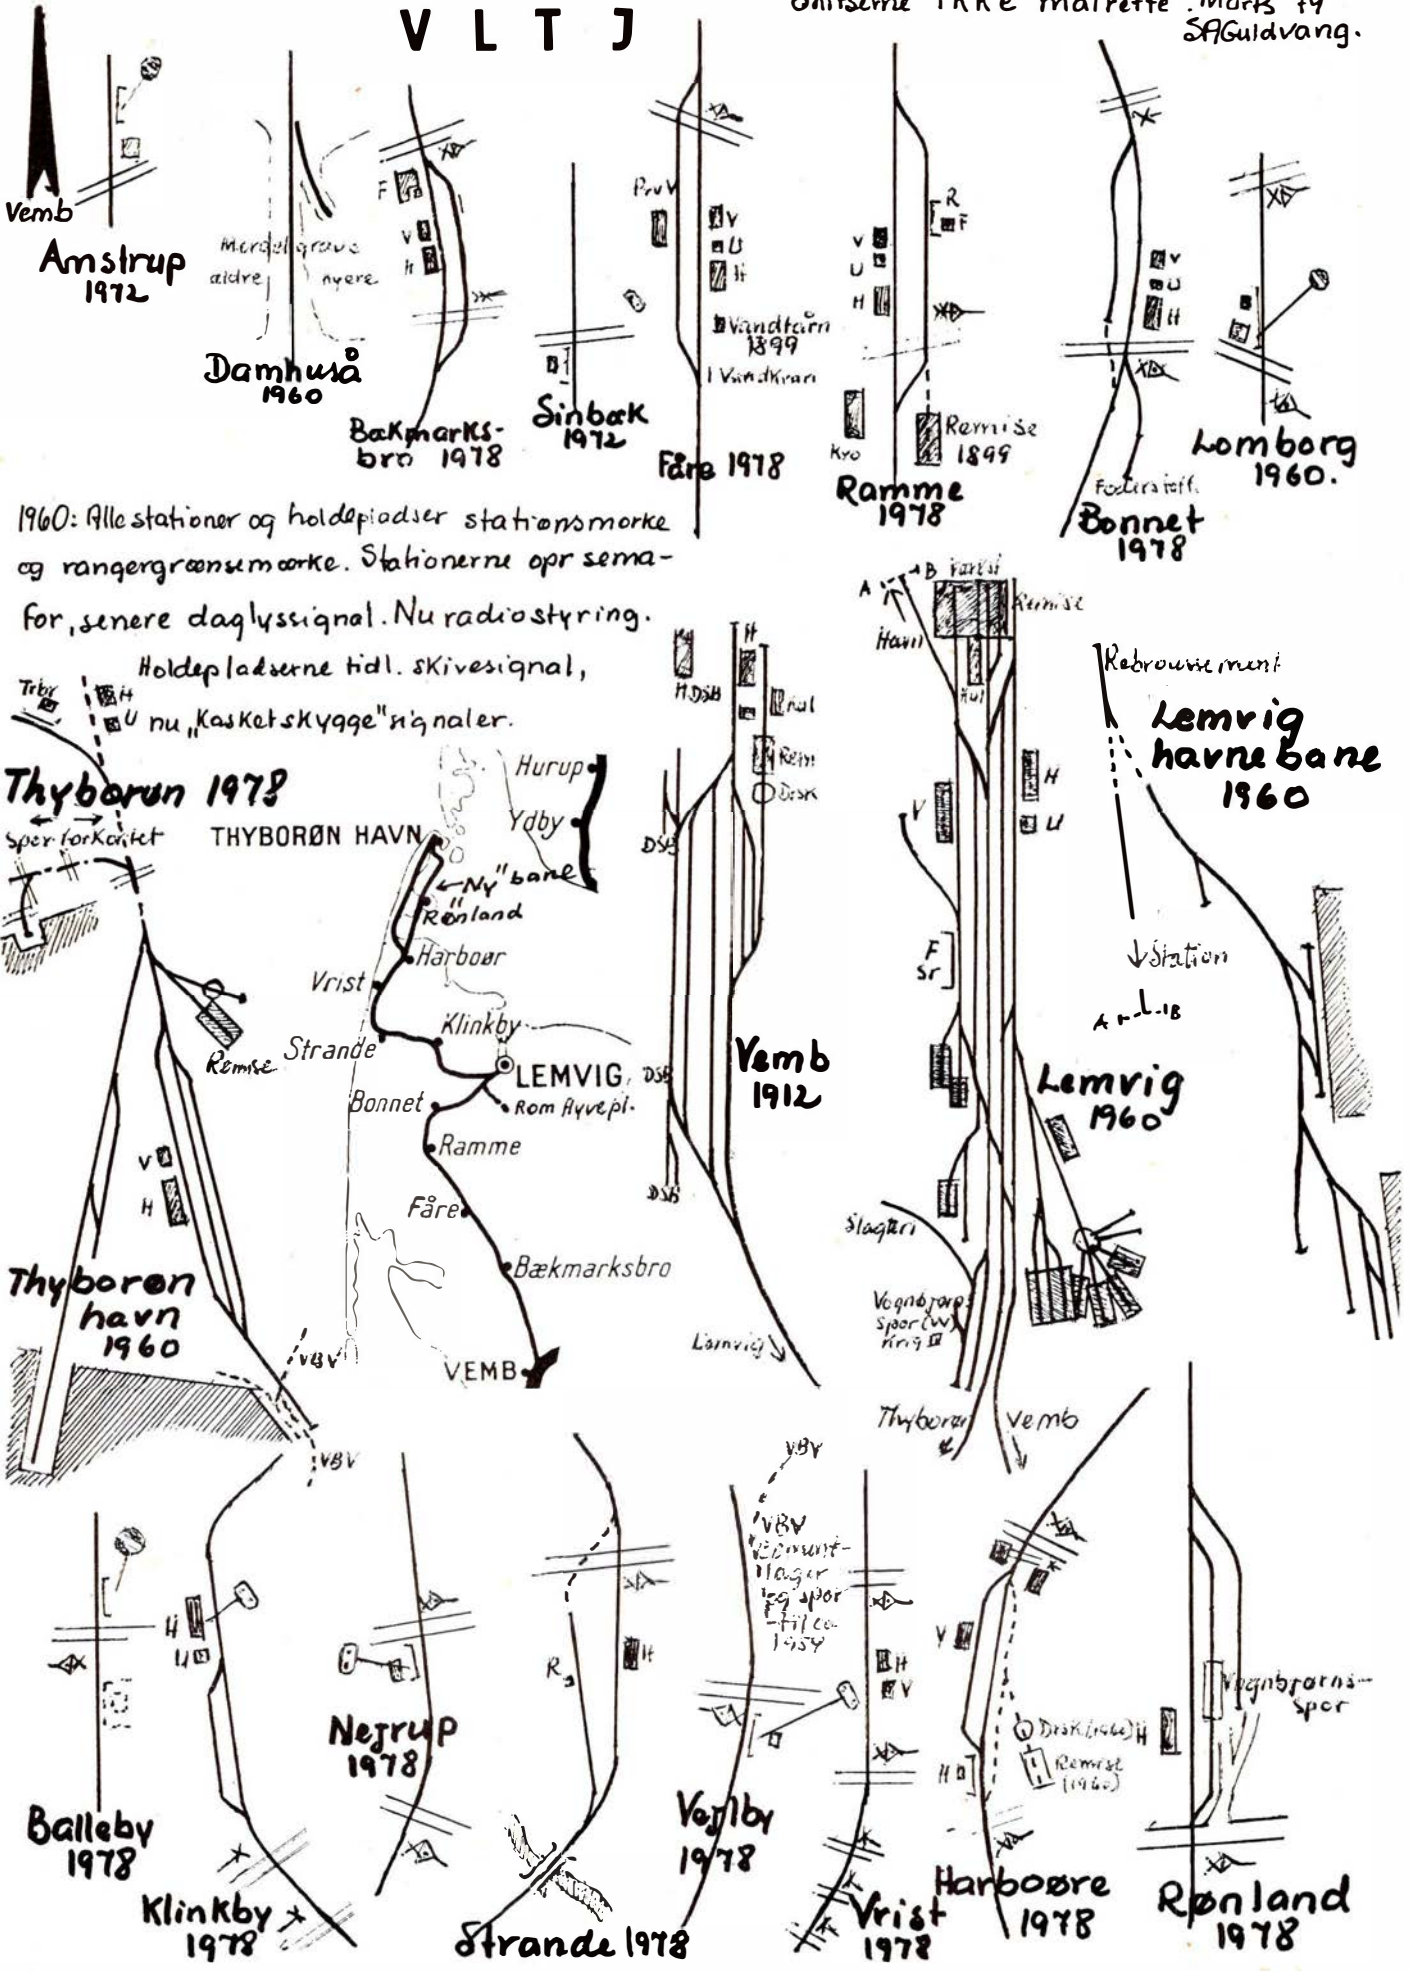 V L T J
IKKE målrette. Marts 79
SAGuldvang.
Vemb
Amstrup
1972
Mergelgrave
ældre
nyere
Damhuså
1960
F
V
H
Bækmarks-
bro 1978
Sinbæk
1972
Prv V
V
U
H
Vandtårn
1899
Vandkran
Fåre 1978
V
U
H
R
F
Kro
Remise
1899
Ramme
1978
V
U
H
Foderstoff.
Bonnet
1978
Lomborg
1960.
1960: Alle stationer og holdepladser stationsmærke
og rangergrænsemærke. Stationerne opr sema-
for, senere daglyssignal. Nu radiostyring.
Holdepladserne tidl. skivesignal,
nu „Kasketskygge"signaler.
Trbr
H
U
Thyborøn 1978
Spor forkortet
THYBORØN HAVN
Hurup
Ydby
←„Ny" bane
Rønland
Harboør
Vrist
Klinkby
Strande
LEMVIG
Rom flyvepl.
Bonnet
Ramme
Fåre
Bækmarksbro
VEMB
Remise
V
H
Thyborøn
havn
1960
VBV
VBV
H DSB
H
Kul
Rem
Disk
DSB
DSB
DSB
Vemb
1912
Lemvig
A
B
Havn
Remise
Kul
V
H
U
F
Sr
Lemvig
1960
Slagteri
Vognbjørns
spor (VV)
Krig II
Thyborøn
Vemb
Rebroussement
Lemvig
havnebane
1960
Station
A
B
Balleby
1978
H
U
Klinkby
1978
Nejrup
1978
R
H
Strande 1978
VBV
VBV
Cement-
lager
og spor
til ca
1954
Vejlby
1978
H
V
Vrist
1978
V
H
Disk (1960)
Remise
(1960)
Harboøre
1978
H
Vognbjørns-
spor
Rønland
1978